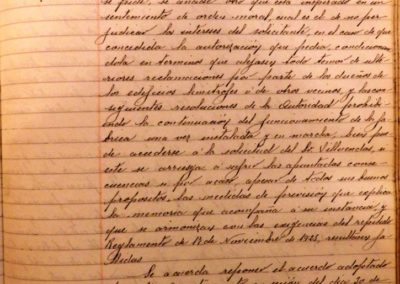 se pide, se añade otro que está inspirado en un
sentimiento de orden moral, cual es el de no per-
judicar los intereses del solicitante, en el caso de que
concedida la autorización que pedia, condicionan-
dola en terminos que alejasen todo temor de ulte-
riores reclamaciones por parte de los dueños de
los edificios limitrofes ó de otros vecinos, y las con-
siguientes resoluciones de la Autoridad prohibi-
endo la continuación del funcionamiento de la fá-
brica una vez instalada y en marcha, bien pue-
de accederse á la solicitud del Sr. Villacañas, si
este se arriesga á sufrir las apuntadas conse-
cuencias si por acaso, apesar de todos sus buenos
propositos, las medidas de previsión que explica
la memoria que acompaña á su instancia, y
que se armonizan con las exigencias del repetido
Reglamento de 17 de Noviembre de 1925, resultasen fa-
llidas.
Se acuerda reponer el acuerdo adoptado